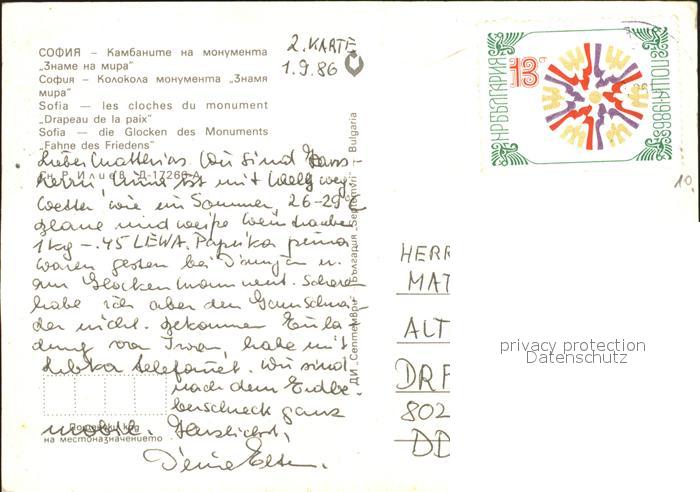 СОФИЯ – Камбаните на монумента
„Знаме на мира"
София – Колокола монумента „Знамя
мира"
Sofia — les cloches du monument
„Drapeau de la paix"
Sofia — die Glocken des Monuments
„Fahne des Friedens"
Сн. Р. Илиев Д-17266-А
2. KARTE
1.9.86
Lieber Matthias. Wir sind
ist mit weg
Wetter wie im Sommer, 26-29°C
blaue und weiße Weintrauben
1 kg -.45 LEWA. Paprika prima
waren gestern bei u.
am Glockenmonument. Schorn
habe ich aber den
der nicht. gekommen Einla
dung von Iwan, habe mit
Ljubka telefoniert. Wir sind
nach dem Erdbe
berschreck ganz
mobil. Herzlichst,
Deine Eltern.
Пощенски код
на местоназначението
ДИ „Септември" България „Septemvri" Bulgaria
НР БЪЛГАРИЯ
13 ст
ПОЩА 1986
10
HERR
MAT
ALT
DRF
802
DD
privacy protection
Datenschutz